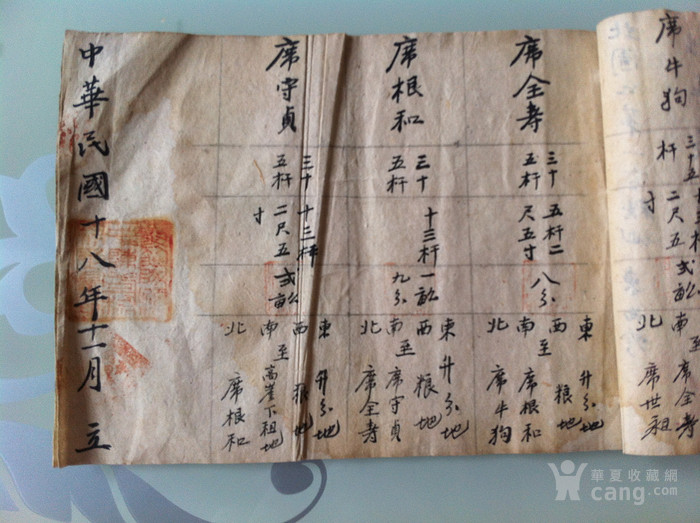 席牛狗
杆
二尺五寸
弍畝
南至席全壽
北席世租
席全壽
三十五杆
五杆二尺五寸
八分
東升分地
西粮地
南至席根和
北席牛狗
席根和
三十五杆
十三杆
一畝九分
東升分地
西粮地
南至席守貞
北席全壽
席守貞
三十五杆
十三杆二尺五寸
弍畝
東升分地
西粮地
南至高崖下祖地
北席根和
中華民國十八年十一月立
華夏收藏網
cang.com